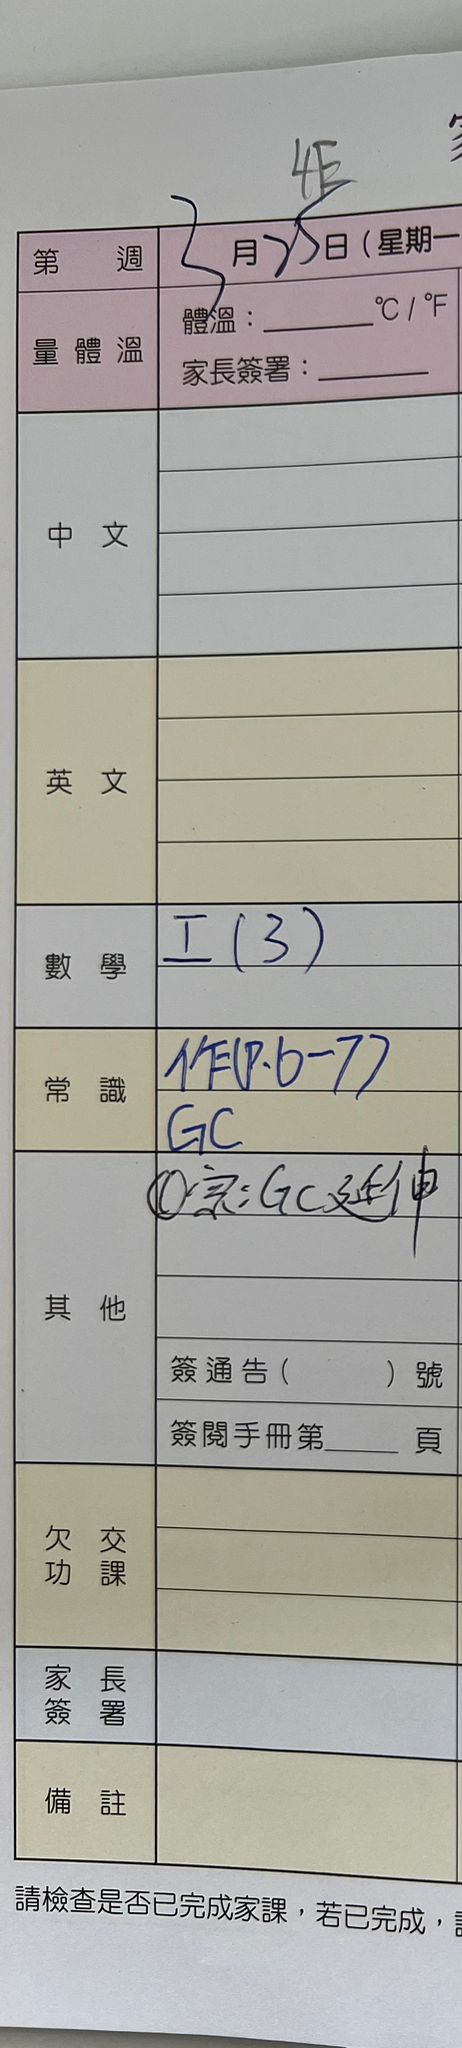 4E
第 週 3月25日(星期一
量體溫 體溫:______°C/°F
家長簽署:______
中文
英文
數學 工(3)
常識 作(P.6-7)
GC
其他 ①宗:GC延伸
簽通告( )號
簽閱手冊第____頁
欠交
功課
家長
簽署
備註
請檢查是否已完成家課,若已完成,